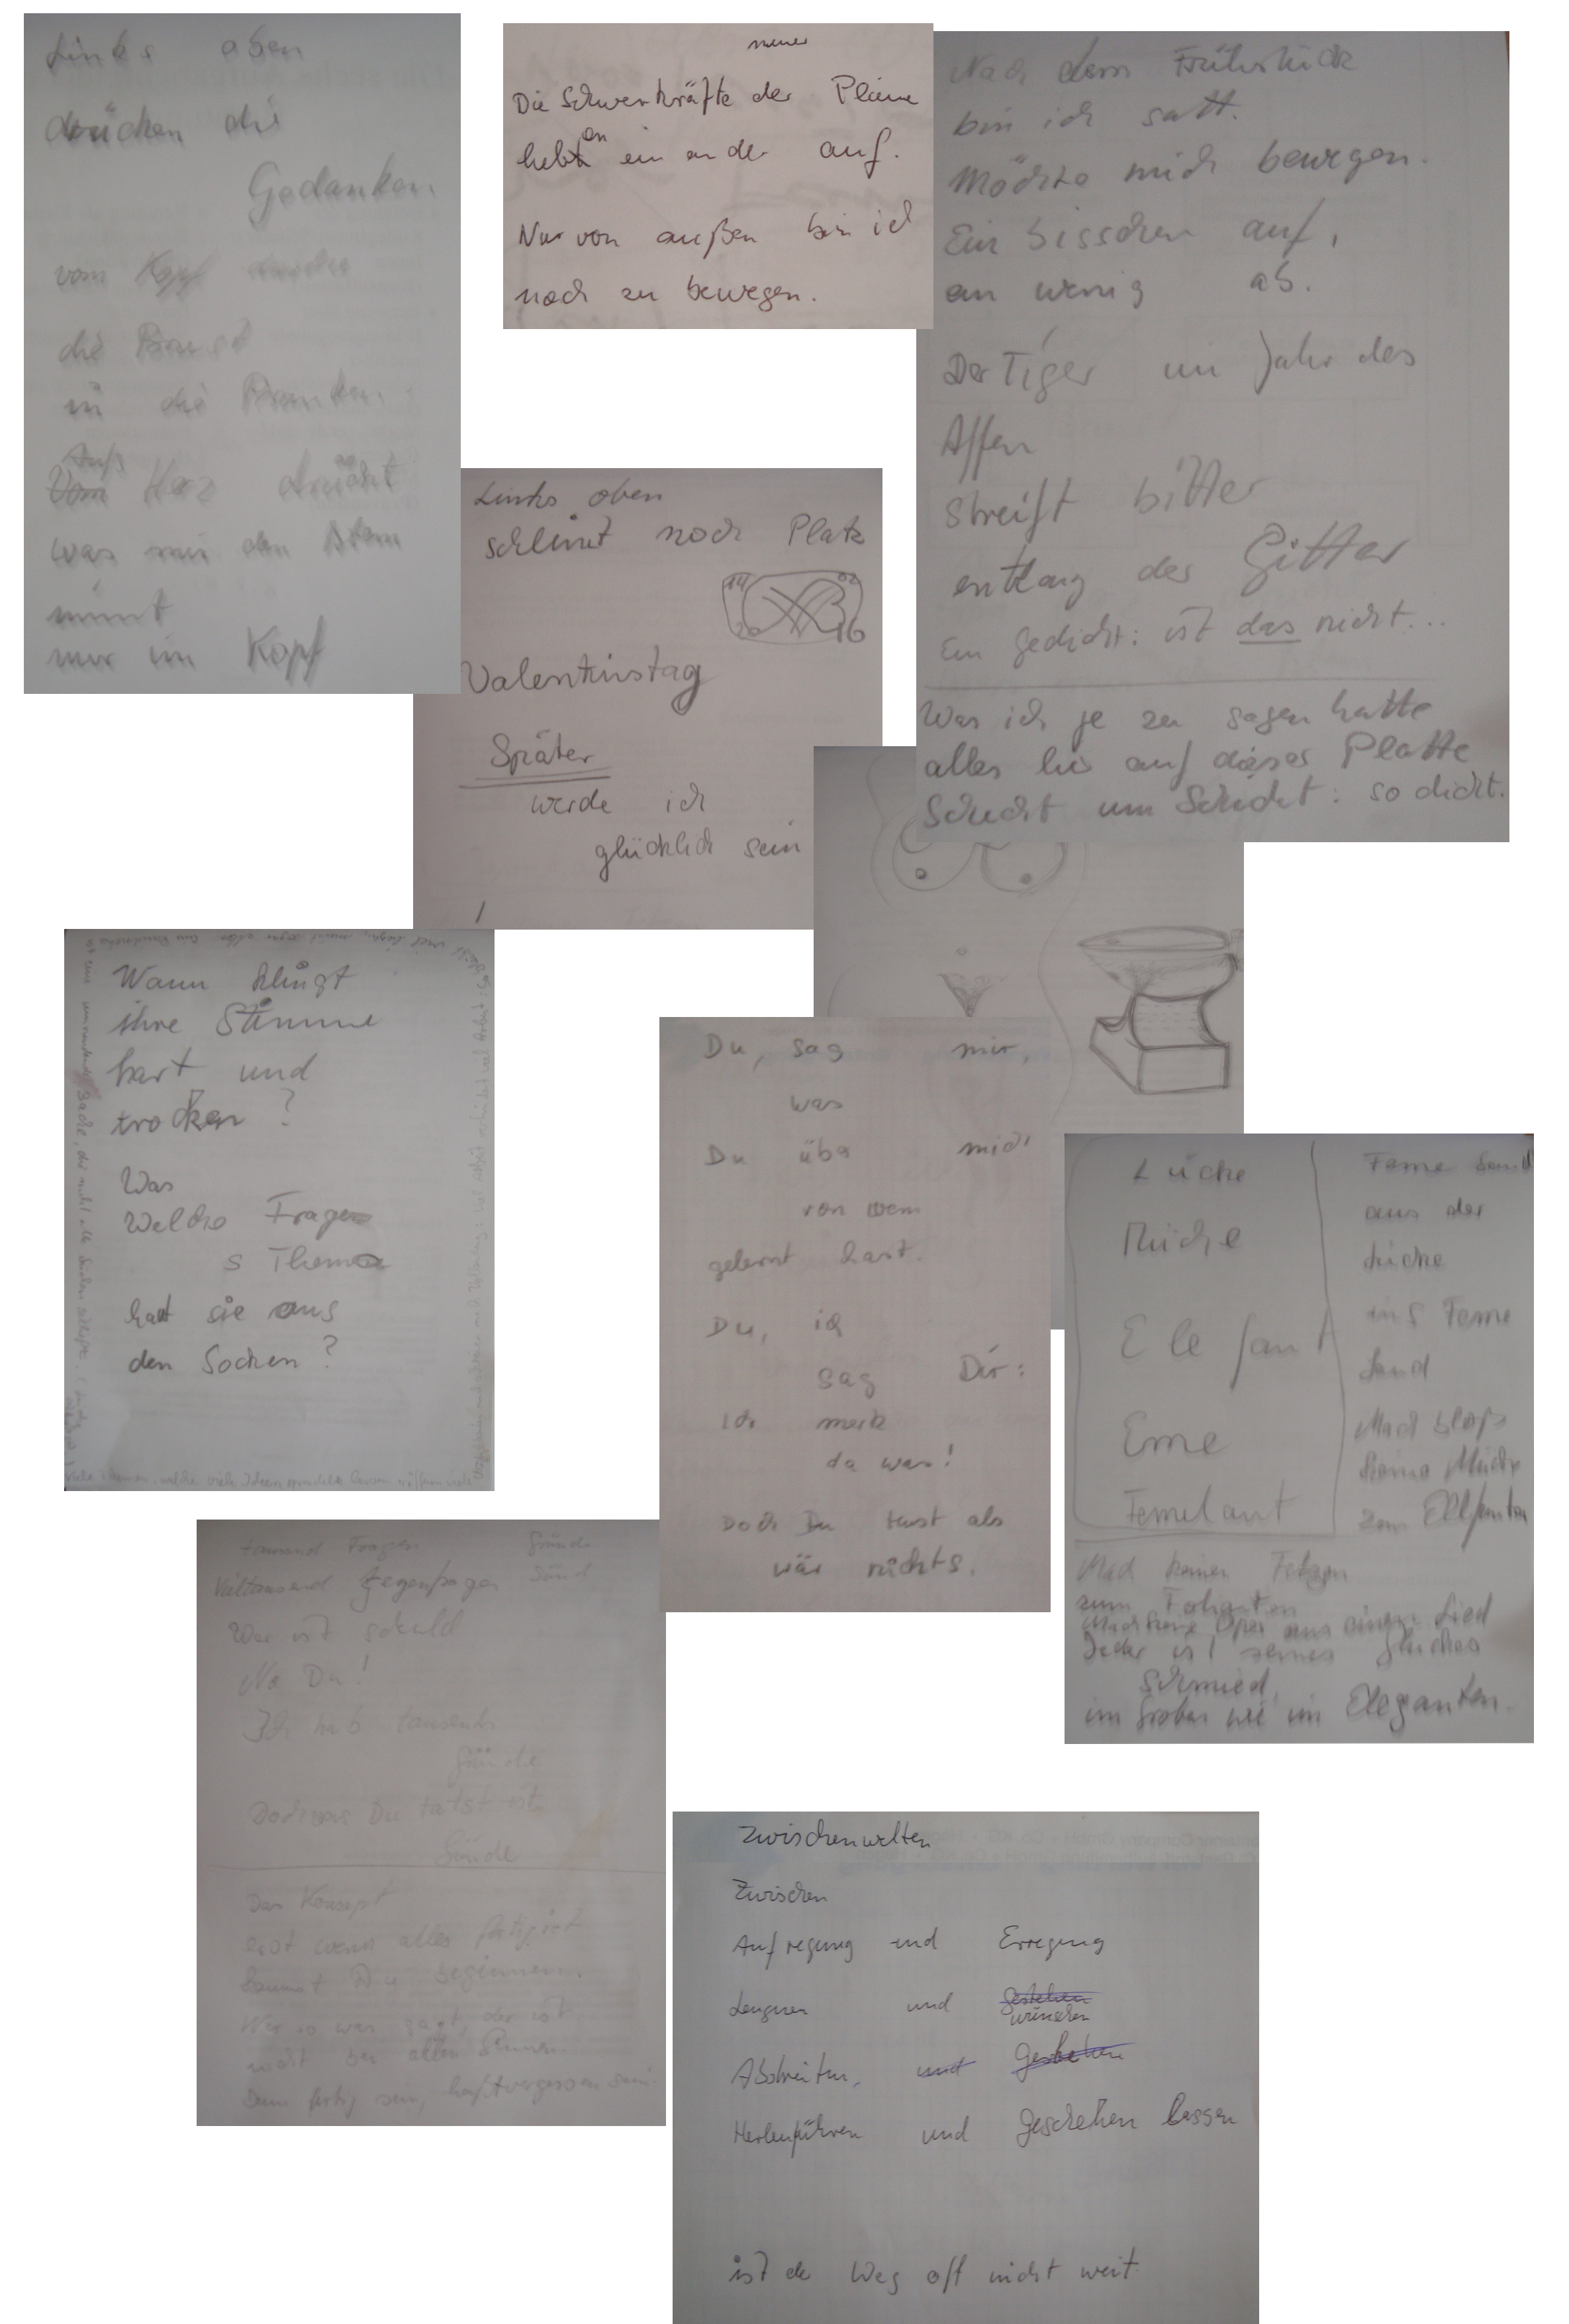 Links oben
drücken die
Gedanken
vom Kopf
die Brust
in die Pranken.
Aufs
Vom Herz drückt
was mir den Atem
nimmt
nur im Kopf
meiner
Die Schwerkräfte der Pläne
heben einander auf.
Nur von außen bin ich
noch zu bewegen.
Nach dem Frühstück
bin ich satt.
Möchte mich bewegen.
Ein bisschen auf,
ein wenig ab.
Der Tiger im Jahr des
Affen
Streift bitter
entlang der Gitter
Ein Gedicht: ist das nicht...
Was ich je zu sagen hatte
alles hier auf dieser Platte
Schicht um Schicht: so dicht.
Links oben
scheint noch Platz
14 02
20 16
Valentinstag
Später
werde ich
glücklich sein
Wann klingt
ihre Stimme
hart und
trocken?
Was
Welche Fragen
s Thema
haut sie aus
den Socken?
Du, sag mir,
was
Du über mich
von wem
gelernt hast.
Du, ich
sag Dir:
Ich merk
da was!
Doch Du tust als
wär nichts.
Lücke
Mücke
Elefant
Eme
Femelant
Feme Sand
aus der
Lücke
ins Feme
Land
Mach bloß
keine Mücke
zum Elefanten
Mach keinen Fetzen
zum Folianten
Mach keine Oper aus einem Lied
Jeder ist seines Glückes
Schmied,
im Groben wie im Eleganten.
tausend Fragen Gründe
Vieltausend Gegenfragen Sünd
Wer ist schuld
Na Du!
Ich hab tausend
Gründe
Doch was Du tatst ist
Sünde
Das Konzept
erst wenn alles fertig ist
kannst Du beginnen.
Wer so was sagt, der ist
nicht bei allen Sinnen.
Denn fertig sein, heißt vergessen sein.
Zwischenwelten
Zwischen
Aufregung und Erregung
Leugnen und Gestehen
wünschen
Abstreiten, und Gestehen
Herbeiführen und Geschehen lassen
ist der Weg oft nicht weit